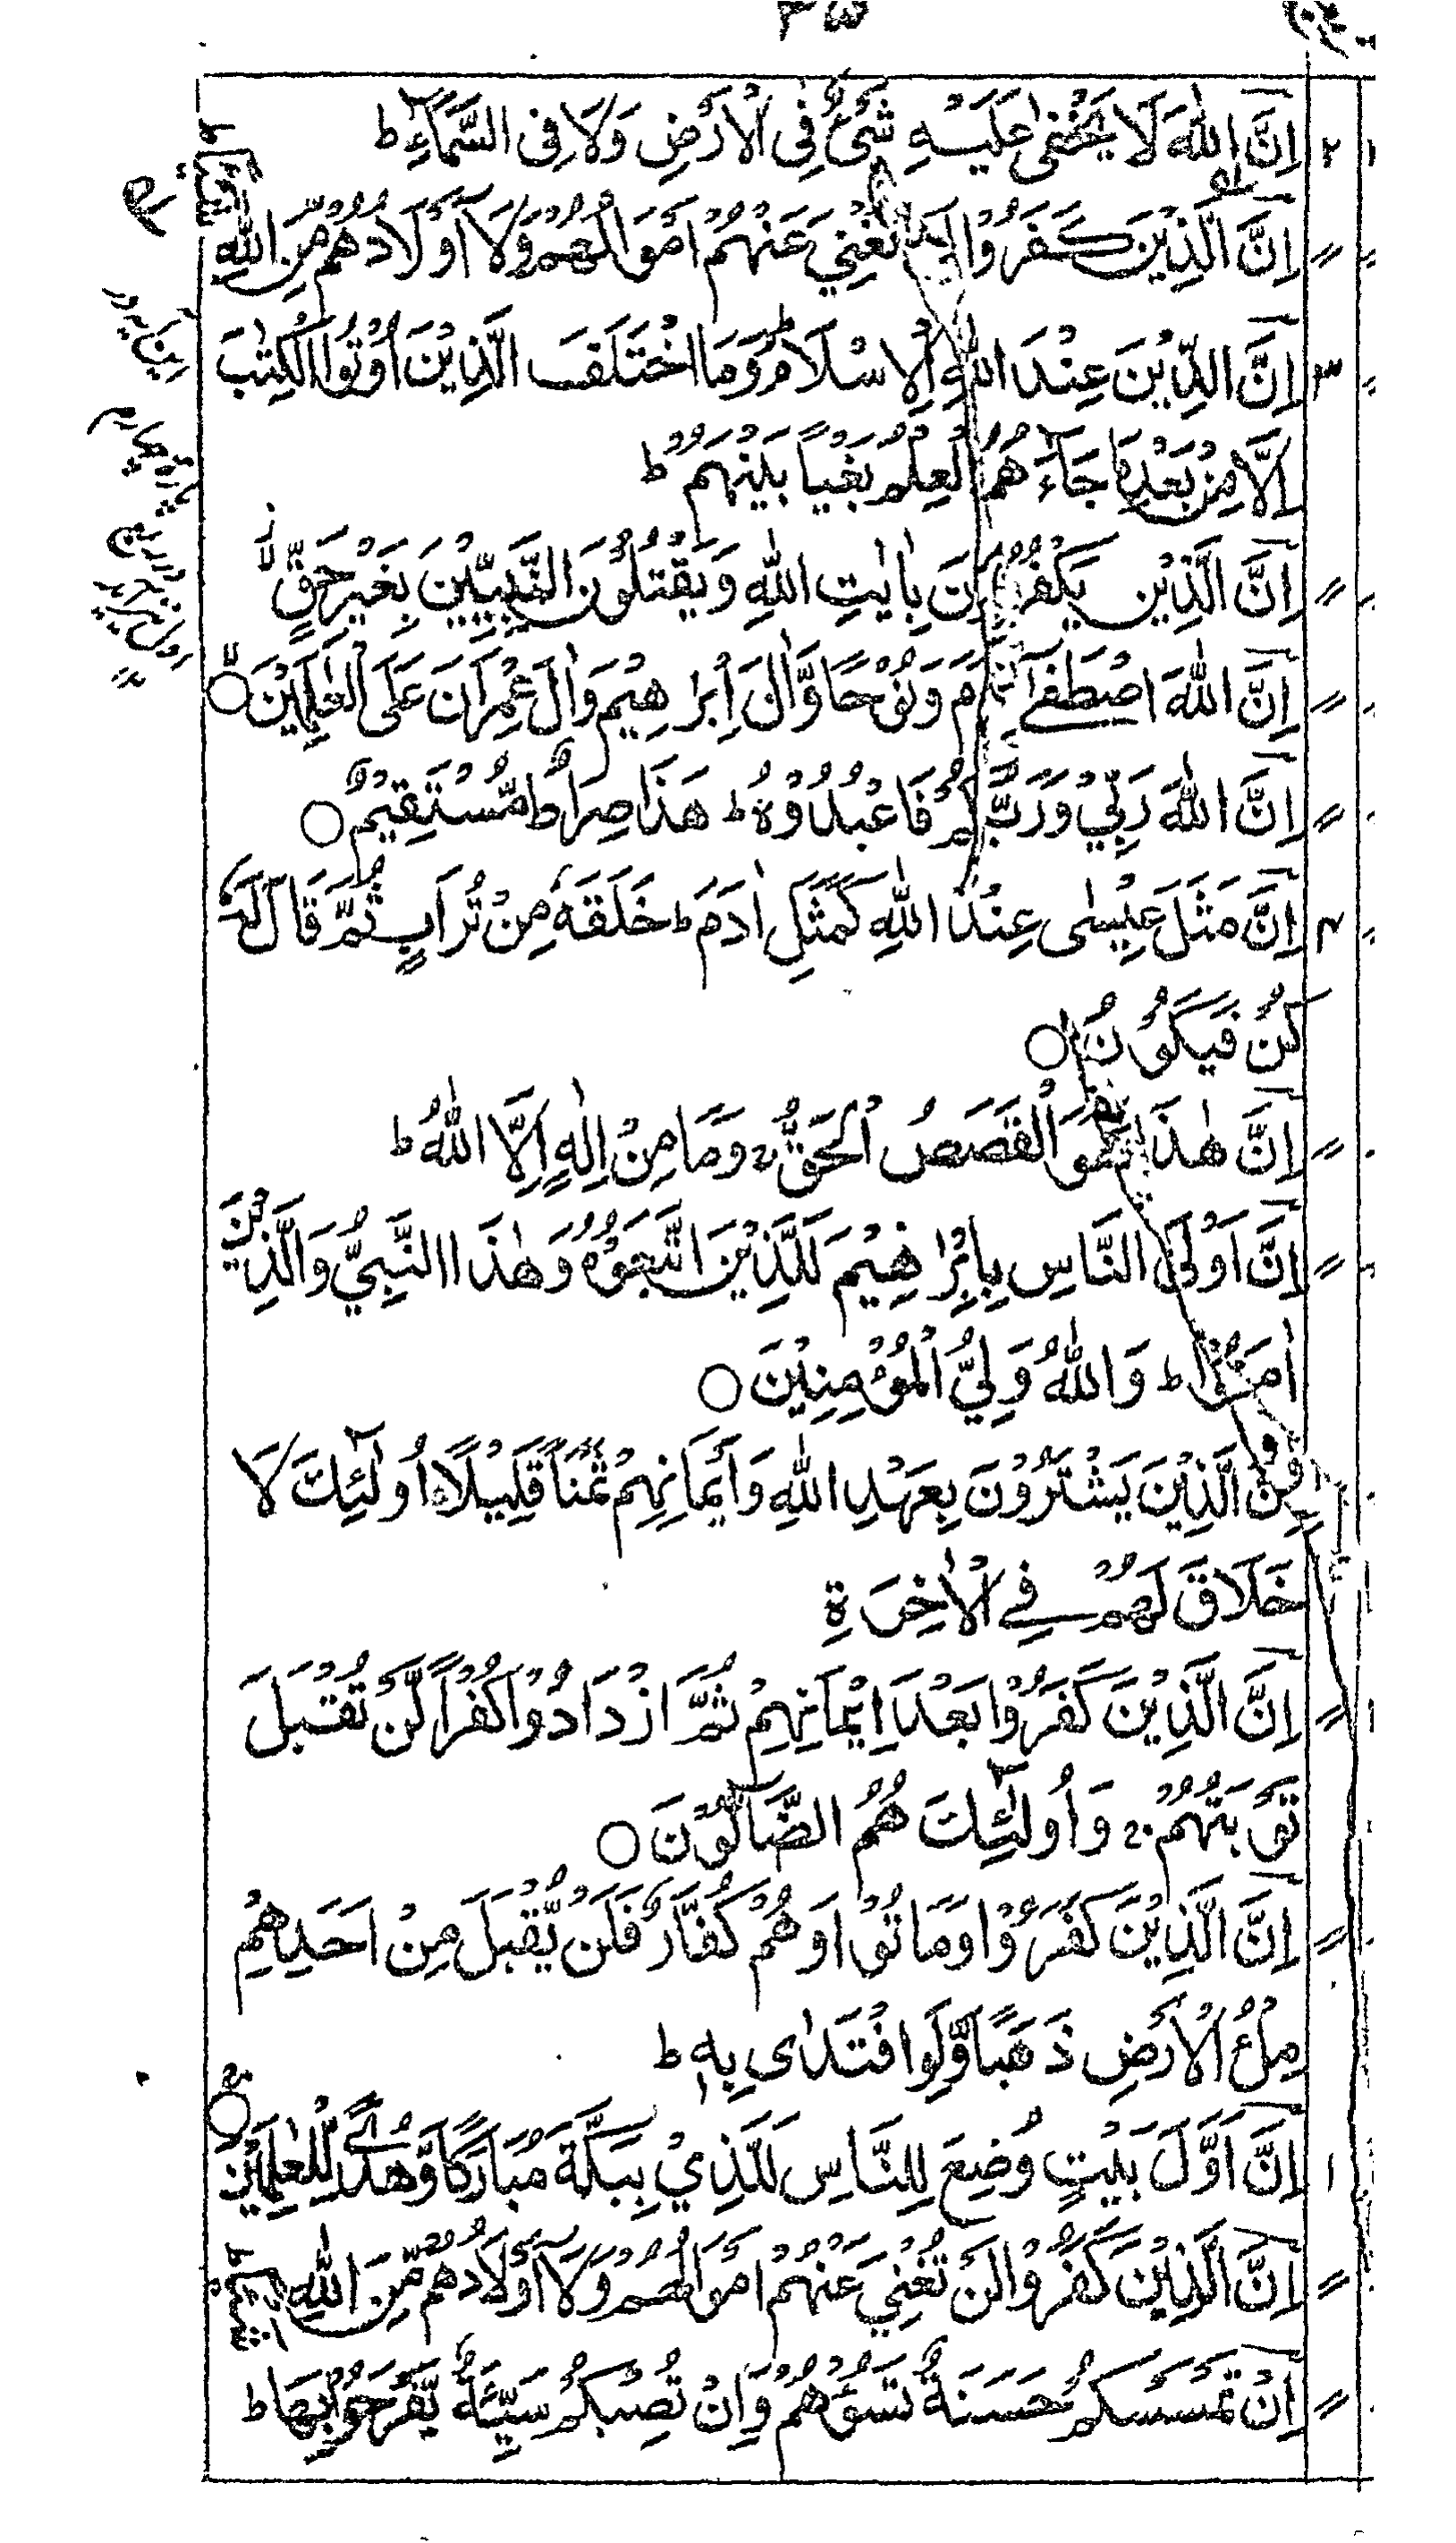 ٣٥
٢ اِنَّ اللّٰهَ لَا يَخْفٰى عَلَيْهِ شَىْءٌ فِى الْاَرْضِ وَلَا فِى السَّمَآءِ ط
〃 اِنَّ الَّذِيْنَ كَفَرُوْا لَنْ تُغْنِيَ عَنْهُمْ اَمْوَالُهُمْ وَلَا اَوْلَادُهُمْ مِّنَ اللّٰهِ
٣ اِنَّ الدِّيْنَ عِنْدَ اللّٰهِ الْاِسْلَامُ وَمَا اخْتَلَفَ الَّذِيْنَ اُوْتُوا الْكِتٰبَ
اِلَّا مِنْ بَعْدِ مَا جَآءَ هُمُ الْعِلْمُ بَغْيًا بَيْنَهُمْ ط
〃 اِنَّ الَّذِيْنَ يَكْفُرُوْنَ بِاٰيٰتِ اللّٰهِ وَيَقْتُلُوْنَ النَّبِيّٖنَ بِغَيْرِ حَقٍّ لا
〃 اِنَّ اللّٰهَ اصْطَفٰى اٰدَمَ وَنُوْحًا وَّاٰلَ اِبْرٰهِيْمَ وَاٰلَ عِمْرٰنَ عَلَى الْعٰلَمِيْنَ ○
〃 اِنَّ اللّٰهَ رَبِّيْ وَرَبُّكُمْ فَاعْبُدُوْهُ ط هَذَا صِرَاطٌ مُّسْتَقِيْمٌ ○
٤ اِنَّ مَثَلَ عِيْسٰى عِنْدَ اللّٰهِ كَمَثَلِ اٰدَمَ ط خَلَقَهٗ مِنْ تُرَابٍ ثُمَّ قَالَ لَهٗ
كُنْ فَيَكُوْنُ ○
〃 اِنَّ هٰذَا لَهُوَ الْقَصَصُ الْحَقُّ ج وَمَا مِنْ اِلٰهٍ اِلَّا اللّٰهُ ط
〃 اِنَّ اَوْلَى النَّاسِ بِاِبْرٰهِيْمَ لَلَّذِيْنَ اتَّبَعُوْهُ وَهٰذَا النَّبِيُّ وَالَّذِيْنَ
اٰمَنُوْا ط وَاللّٰهُ وَلِيُّ الْمُؤْمِنِيْنَ ○
اِنَّ الَّذِيْنَ يَشْتَرُوْنَ بِعَهْدِ اللّٰهِ وَاَيْمَانِهِمْ ثَمَنًا قَلِيْلًا اُولٰٓئِكَ لَا
خَلَاقَ لَهُمْ فِي الْاٰخِرَةِ
〃 اِنَّ الَّذِيْنَ كَفَرُوْا بَعْدَ اِيْمَانِهِمْ ثُمَّ ازْدَادُوْا كُفْرًا لَّنْ تُقْبَلَ
تَوْبَتُهُمْ ج وَاُولٰٓئِكَ هُمُ الضَّآلُّوْنَ ○
〃 اِنَّ الَّذِيْنَ كَفَرُوْا وَمَاتُوْا وَهُمْ كُفَّارٌ فَلَنْ يُّقْبَلَ مِنْ اَحَدِهِمْ
مِلْءُ الْاَرْضِ ذَهَبًا وَّلَوِ افْتَدٰى بِهٖ ط
١ اِنَّ اَوَّلَ بَيْتٍ وُضِعَ لِلنَّاسِ لَلَّذِيْ بِبَكَّةَ مُبَارَكًا وَّهُدًى لِّلْعٰلَمِيْنَ ○
〃 اِنَّ الَّذِيْنَ كَفَرُوْا لَنْ تُغْنِيَ عَنْهُمْ اَمْوَالُهُمْ وَلَا اَوْلَادُهُمْ مِّنَ اللّٰهِ
〃 اِنْ تَمْسَسْكُمْ حَسَنَةٌ تَسُؤْهُمْ وَاِنْ تُصِبْكُمْ سَيِّئَةٌ يَّفْرَحُوْا بِهَا ط